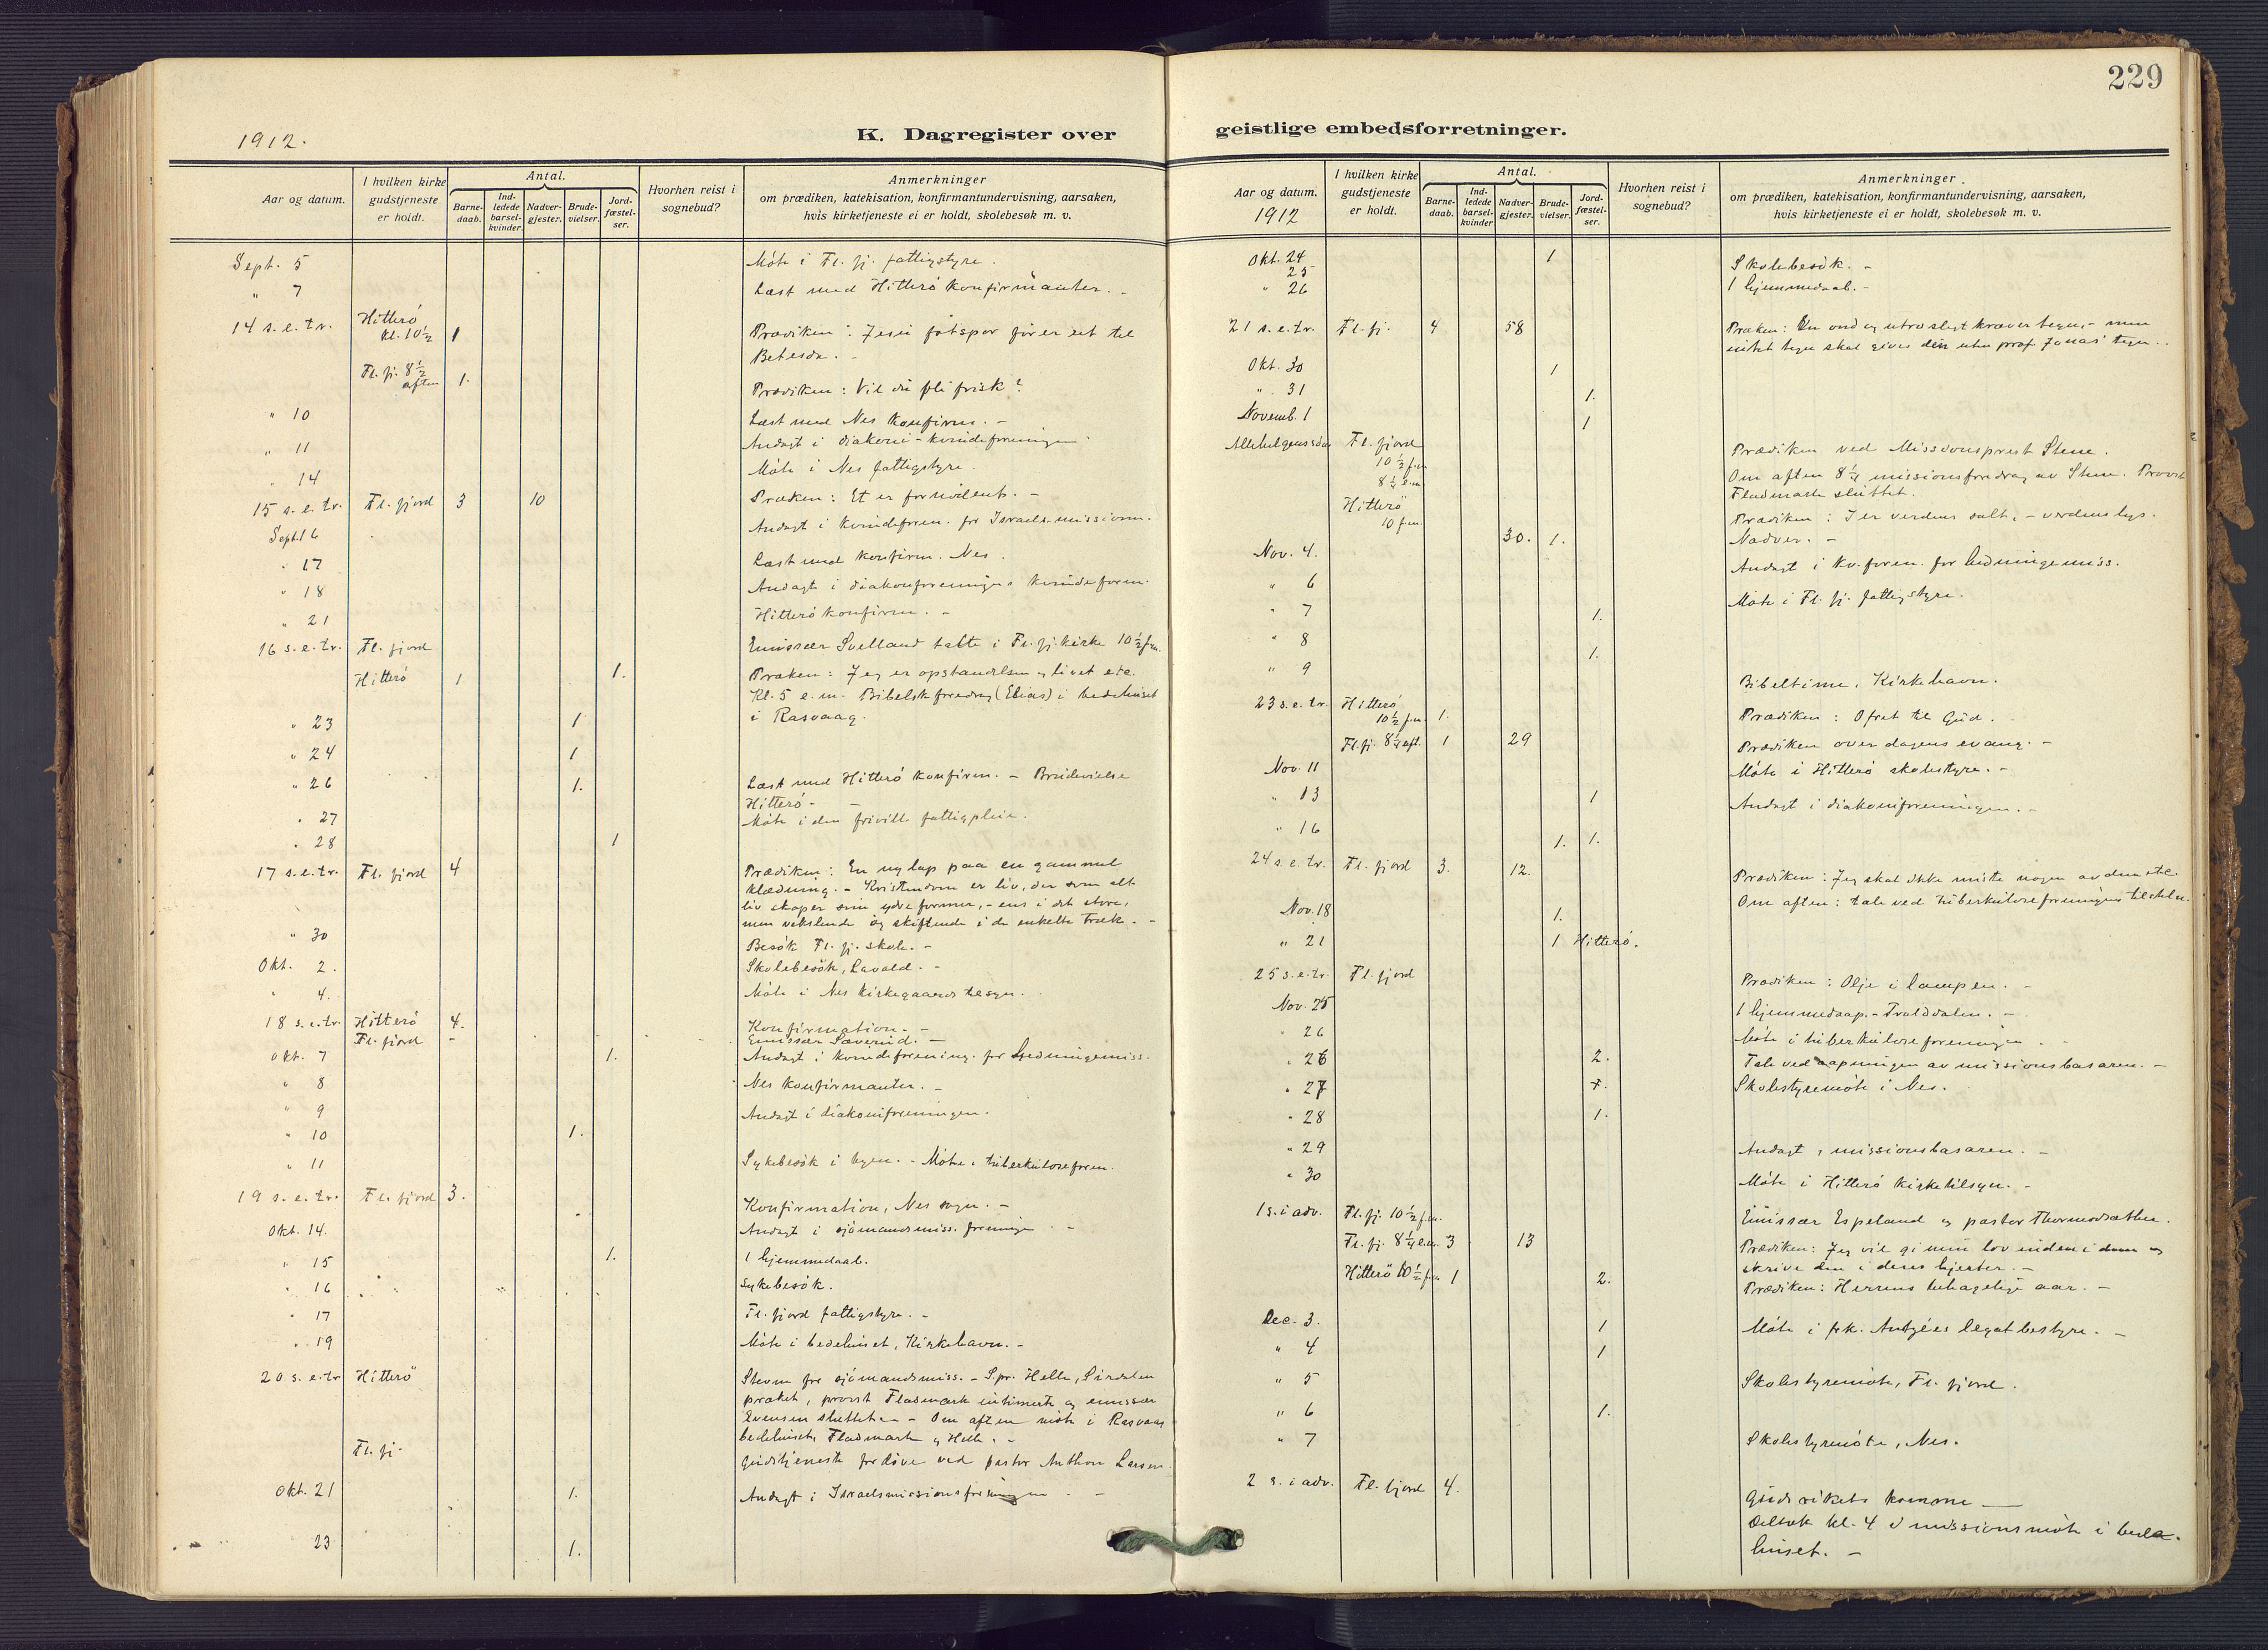 229
K. Dagregister over geistlige embedsforretninger.
1912.
Aar og datum.
I hvilken kirke gudstjeneste er holdt.
Antal.
Barne-daab.
Ind-ledede barsel-kvinder.
Nadver-gjester.
Brude-vielser.
Jord-fæstel-ser.
Hvorhen reist i sognebud?
Anmerkninger
om prædiken, katekisation, konfirmantundervisning, aarsaken,
hvis kirketjeneste ei er holdt, skolebesøk m. v.
Sept. 5 Möte i Fl. fj. fattigstyre.
" 7 Læst med Hitterö konfirmanter. -
14 s. e. tr. Hitterö kl. 10½ 1 Prædiken: Jesu fotspor förer ut til
Betesda. -
Fl. fj. 8½ aften 1. Prædiken: Vil du bli frisk?
" 10 Læst med Nes konfirm. -
" 11 Andagt i diakoni-kvindeforeningen
" 14 Möte i Nes fattigstyre.
15 s. e. tr. Fl. fjord 3 10 Præken: Et er fornödent. -
Sept. 16 Andagt i kvindeforen. for Israelsmissionen.
" 17 Læst med konfirm. Nes.
" 18 Andagt i diakonforeningens kvindeforen.
" 21 Hitterö konfirm. -
16 s. e. tr. Fl. fjord Emissær Svelland talte i Fl. fj. kirke 10½ fm.
Hitterö 1 1. Præken: Jeg er opstandelsen og livet etc.
Kl. 5 e. m. Bibelsk foredrag (Elias) i bedehuset
" 23 1 i Rasvaag.
" 24 1
" 26 1. Læst med Hitterö konfirm. - Brudevielse
Hitterö -
" 27 Möte i den frivill. fattigpleie.
" 28 1
17 s. e. tr. Fl. fjord 4 Prædiken: En ny lap paa en gammel
klædning. - Kristendom er liv, der som alt
liv skaper sine ydre former, - ens i det store,
men vekslende og skiftende i de enkelte træk. -
" 30 Besök Fl. fj. skole. -
Okt. 2. Skolebesök, Lavold. -
" 4. Möte i Nes kirkegaards tilsyn.
18 s. e. tr. Hitterö 4. Konfirmation. -
Fl. fjord - Emissær Saverud. -
Okt. 7 1. Andagt i kvindeforening for Hedningemiss.
" 8 Nes konfirmanter. -
" 9 Andagt i diakoniforeningen.
" 10 1.
" 11 Sykebesök i byen. - Möte i tuberkuloseforen.
19 s. e. tr. Fl. fjord 3. Konfirmation, Nes sogn. -
Okt. 14. Andagt i sjömandsmiss. forening -
" 15 1. 1 hjemmedaab.
" 16 Sykebesök.
" 17 Fl. fjord fattigstyre. -
" 19 Möte i bedehuset, Kirkehavn. -
20 s. e. tr Hitterö Stevne for sjömandsmiss. - S.pr. Helle, Sirdalen
præket, provst Fladmark intimerte og emissær
Evensen sluttet. - Om aften möte i Rasvaag
bedehuset, Fladmark og Helle. -
Fl. fj. Gudstjeneste for döve ved pastor Anthon Larsen
Okt. 21 1. Andagt i Israelsmissionsforeningen -
" 23 1.
Aar og datum.
1912
I hvilken kirke gudstjeneste er holdt.
Antal.
Barne-daab.
Ind-ledede barsel-kvinder
Nadver-gjester.
Brude-vielser.
Jord-fæstel-ser.
Hvorhen reist i sognebud?
Anmerkninger
om prædiken, katekisation, konfirmantundervisning, aarsaken,
hvis kirketjeneste ei er holdt, skolebesøk m. v.
Okt. 24 1 Skolebesök. -
25 1 hjemmedaab. -
" 26
21 s. e. tr. Fl. fj. 4 58 Præken: En ond og utro slegt kræver tegn, - men
intet tegn skal gives den uten prof. Jonas' tegn.
Okt. 30 1
" 31 1.
Novemb. 1 1
Allehelgensdag Fl. fjord 10½ fm Prædiken ved Missionsprest Stene.
8¼ e.m Om aften 8¼ missionsforedrag av Stene. Provst
Fladmark sluttet.
Hitterö 10 fm. Prædiken: I er verdens salt, - verdens lys.
30. 1. Nadver. -
Nov. 4. Andagt i kv. foren. for hedningemiss.
" 6 Möte i Fl. fj. fattigstyre.
" 7 1.
" 8 1.
" 9 Bibeltime, Kirkehavn.
23 s. e. tr. Hitterö 10½ fm. 1. Prædiken: Ofret til Gud.
Fl. fj. 8¼ aft. 1 29 Prædiken over dagens evang. -
Nov. 11 Möte i Hitterö skolestyre. -
" 13 1 Andagt i diakoniforeningen. -
" 16 1. 1.
24 s. e. tr. Fl. fjord 3. 12. Prædiken: Jeg skal ikke miste nogen av dem etc.
Om aften: tale ved tuberkuloseforeningens
Nov. 18 1.
" 21 1 Hitterö.
25 s. e. tr. Fl. fjord Prædiken: Olje i lampen. -
Nov. 25 1 hjemmedaap. - Trolddalen. -
" 26 Möte i tuberkuloseforeningen -
" 26 2. Tale ved aapningen av missionsbasaren. -
" 27 Skolestyremöte i Nes.
" 28 1.
" 29 Andagt i missionsbasaren. -
" 30 Möte i Hitterö kirketilsyn. -
1 s. i adv. Fl. fj. 10½ fm. Emissær Espeland og pastor Thormodsæther.
Fl. fj. 8¼ e.m. 3 13 Prædiken: Jeg vil gi min lov inden i dem og
skrive den i deres hjerter. -
Hitterö 10½ fm 1 2. Prædiken: Herrens behagelige aar. -
Dec. 3. 1 Möte i frk. legatbestyre. -
" 4 1
" 5 Skolestyremöte, Fl. fjord.
" 6 1.
" 7 Skolestyremöte, Nes.
2 s. i adv. Fl. fjord 4. Guds rikets komme -
Deltok kl. 4 i missionsmöte i bede-
huset. -